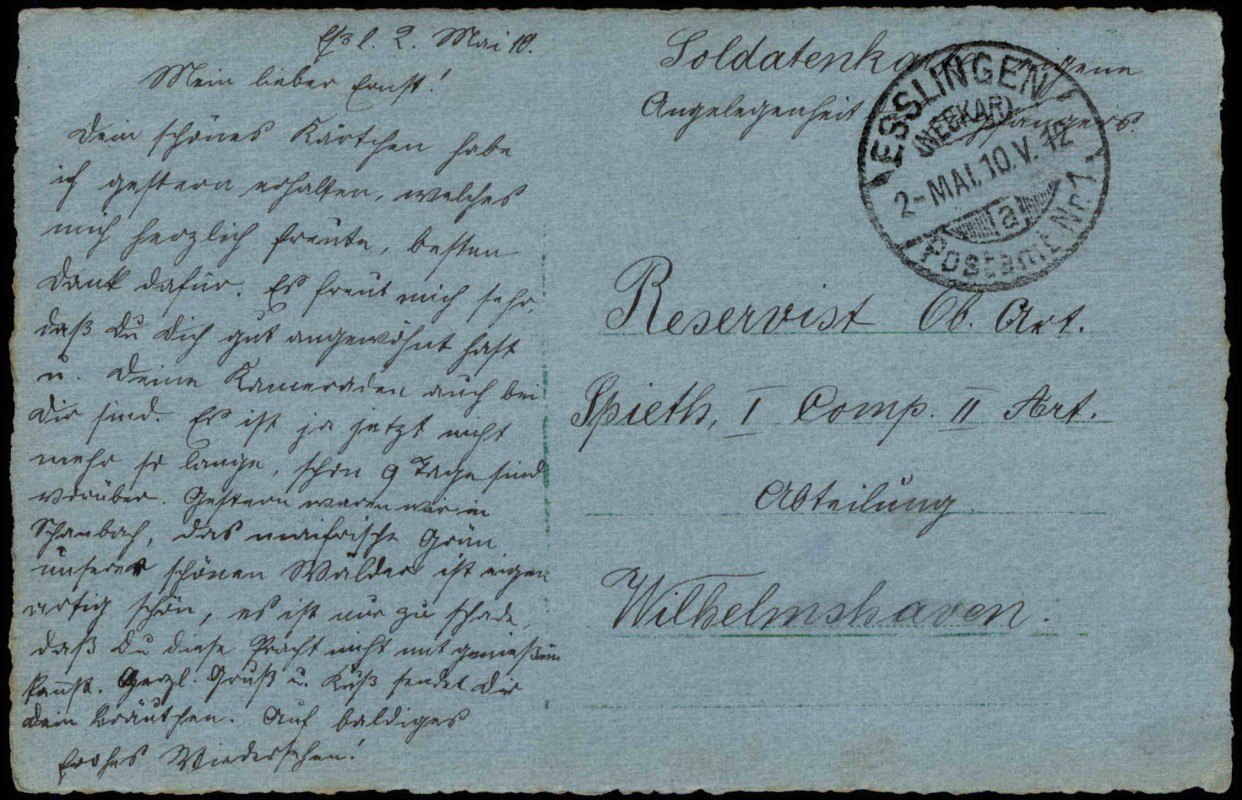 Eßl. 2. Mai 10.
Mein lieber Ernst!
Dein schönes Kärtchen habe
ich gestern erhalten, welches
mich herzlich freute, besten
Dank dafür. Es freut mich sehr,
daß Du Dich gut angewöhnt hast
u. Deine Kameraden auch bei
Dir sind. Es ist ja jetzt nicht
mehr so lange, schon 9 Tage sind
vorüber. Gestern waren wir in
Schanbach, das maifrische Grün
unserer schönen Wälder ist eigen
artig schön, es ist nur zu schade,
daß Du diese Pracht nicht mit genießen
kannst. Herzl. Gruß u. Kuß sendet Dir
Dein Bräutchen. Auf baldiges
frohes Wiedersehen!
Soldatenkarte eigene
Angelegenheit Empfängers.
ESSLINGEN
(NECKAR)
2-MAI.10.V.12
a
Postamt Nr.1
Reservist Ob. Art.
Spieth, I Comp. II Art.
Abteilung
Wilhelmshaven.